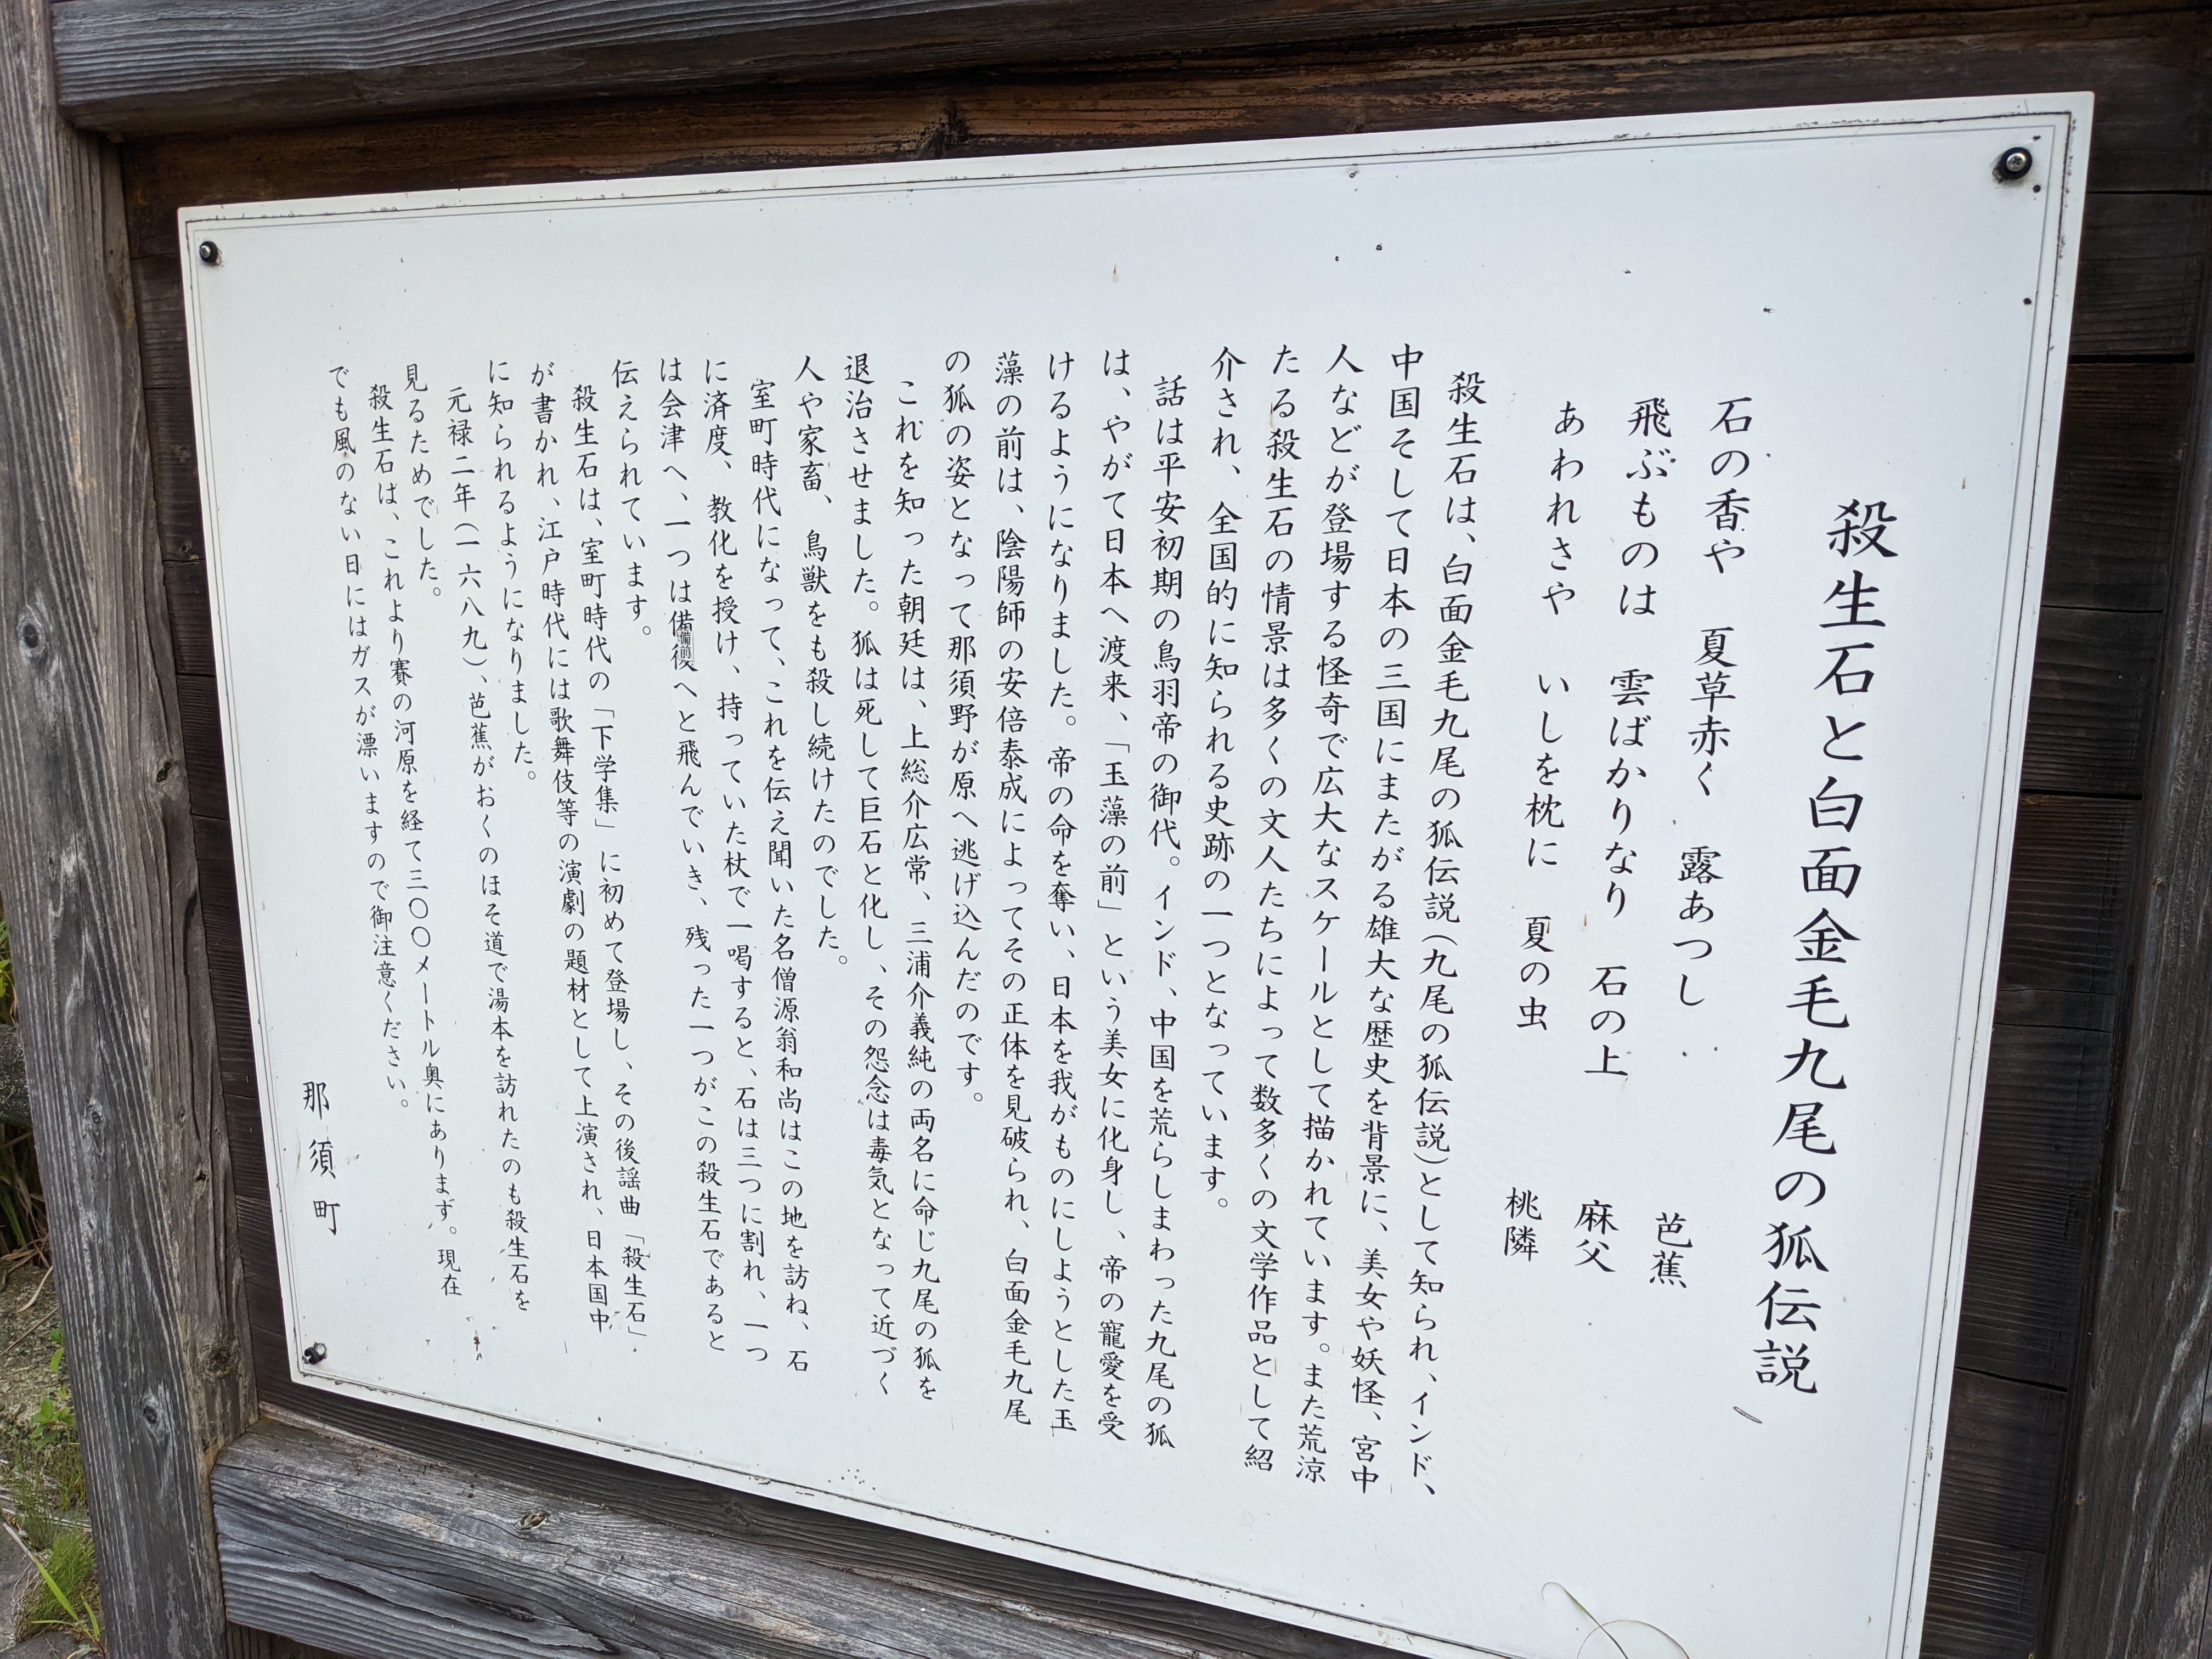 殺生石と白面金毛九尾の狐伝説
石の香や　夏草赤く　露あつし　芭蕉
飛ぶものは　雲ばかりなり　石の上　麻父
あわれさや　いしを枕に　夏の虫　桃隣
殺生石は、白面金毛九尾の狐伝説（九尾の狐伝説）として知られ、インド、
中国そして日本の三国にまたがる雄大な歴史を背景に、美女や妖怪、宮中
人などが登場する怪奇で広大なスケールとして描かれています。また荒涼
たる殺生石の情景は多くの文人たちによって数多くの文学作品として紹
介され、全国的に知られる史跡の一つとなっています。
話は平安初期の鳥羽帝の御代。インド、中国を荒らしまわった九尾の狐
は、やがて日本へ渡来、「玉藻の前」という美女に化身し、帝の寵愛を受
けるようになりました。帝の命を奪い、日本を我がものにしようとした玉
藻の前は、陰陽師の安倍泰成によってその正体を見破られ、白面金毛九尾
の狐の姿となって那須野が原へ逃げ込んだのです。
これを知った朝廷は、上総介広常、三浦介義純の両名に命じ九尾の狐を
退治させました。狐は死して巨石と化し、その怨念は毒気となって近づく
人や家畜、鳥獣をも殺し続けたのでした。
室町時代になって、これを伝え聞いた名僧源翁和尚はこの地を訪ね、石
に済度、教化を授け、持っていた杖で一喝すると、石は三つに割れ、一つ
は会津へ、一つは備後へと飛んでいき、残った一つがこの殺生石であると
伝えられています。
殺生石は、室町時代の「下学集」に初めて登場し、その後謡曲「殺生石」
が書かれ、江戸時代には歌舞伎等の演劇の題材として上演され、日本国中
に知られるようになりました。
元禄二年（一六八九）、芭蕉がおくのほそ道で湯本を訪れたのも殺生石を
見るためでした。
殺生石は、これより賽の河原を経て三〇〇メートル奥にあります。現在
でも風のない日にはガスが漂いますので御注意ください。
那須町